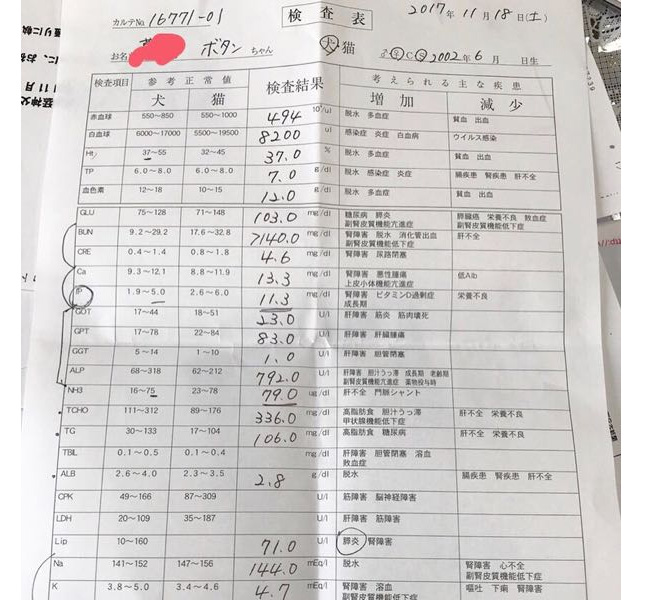 カルテNo 16771-01 検査表 2017年 11月 18日(土)
お名 ボタン ちゃん 犬 猫 ♂ ♀ C S 2002年 6月 日生
検査項目 参考正常値 検査結果 考えられる主な疾患
犬 猫 増加 減少
赤血球 550~850 550~1000 494 10⁴/ul 脱水 多血症 貧血 出血
白血球 6000~17000 5500~19500 8200 ul 感染症 炎症 白血病 ウイルス感染
Ht 37~55 32~45 37.0 % 脱水 多血症 貧血 出血
TP 6.0~8.0 6.0~8.0 7.0 g/dl 脱水 感染症 炎症 腸疾患 腎疾患 肝不全
血色素 12~18 10~15 12.0 g/dl 脱水 多血症 貧血 出血
GLU 75~128 71~148 103.0 mg/dl 糖尿病 膵炎 膵臓癌 栄養不良 敗血症
副腎皮質機能亢進症 副腎皮質機能低下症
BUN 9.2~29.2 17.6~32.8 >140.0 mg/dl 腎障害 脱水 消化管出血 肝不全
副腎皮質機能低下症
CRE 0.4~1.4 0.8~1.8 4.6 mg/dl 腎障害 尿路閉塞
Ca 9.3~12.1 8.8~11.9 13.3 mg/dl 腎障害 悪性腫瘍 低Alb
上皮小体機能亢進症
IP 1.9~5.0 2.6~6.0 11.3 mg/dl 腎障害 ビタミンD過剰症 栄養不良
成長期
GOT 17~44 18~51 23.0 U/l 肝障害 筋炎 筋肉壊死
GPT 17~78 22~84 83.0 U/l 肝障害 肝臓腫瘍
GGT 5~14 1~10 1.0 U/l 肝障害 胆管閉塞
ALP 68~318 62~212 792.0 U/l 肝障害 胆汁うっ滞 成長期 老齢期
副腎皮質機能亢進症 薬物投与時
NH3 16~75 23~78 79.0 ug/dl 肝不全 門脈シャント
TCHO 111~312 89~176 336.0 mg/dl 高脂肪食 胆汁うっ滞 肝不全 栄養不良
甲状腺機能低下症
TG 30~133 17~104 106.0 mg/dl 高脂肪食 糖尿病 肝不全 栄養不良
TBIL 0.1~0.5 0.1~0.4 mg/dl 肝障害 胆管閉塞 溶血
敗血症
ALB 2.6~4.0 2.3~3.5 2.8 g/dl 脱水 腸疾患 腎疾患 肝不全
CPK 49~166 87~309 U/l 筋障害 脳神経障害
LDH 20~109 35~187 U/l 肝障害 筋障害
Lip 10~160 71.0 U/l 膵炎 腎障害
Na 141~152 147~156 144.0 mEq/l 脱水 腎障害 心不全
副腎皮質機能低下症
K 3.8~5.0 3.4~4.6 4.7 mEq/l 腎障害 溶血 嘔吐 下痢 腎障害
副腎皮質機能低下症